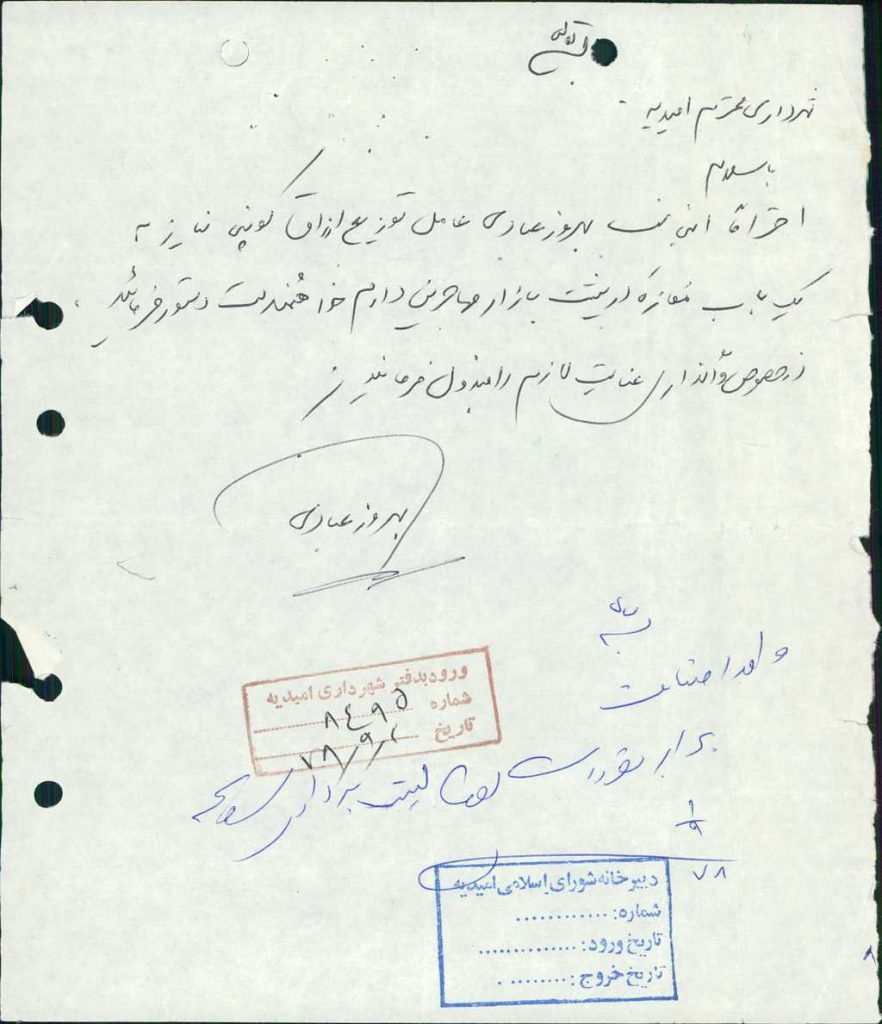 بسمه تعالی
شهرداری محترم امیدیه
با سلام
احتراماً اینجانب بهروز عبادی عامل توزیع ارزاق کوپنی نیاز به
یک باب مغازه در پشت بازار مهاجرین دارم خواهشمندست دستور فرمائید
در خصوص واگذاری عنایت لازم را مبذول فرمائید
بهروز عبادی
بسمه
واحد اصناف
برابر مقررات
ورود بدفتر شهرداری امیدیه
شماره ۸۴۹۵
تاریخ ۷۸/۹/۱
۷۸/۹/۱
دبیرخانه شورای اسلامی امیدیه
شماره: ............
تاریخ ورود: ..............
تاریخ خروج: .........